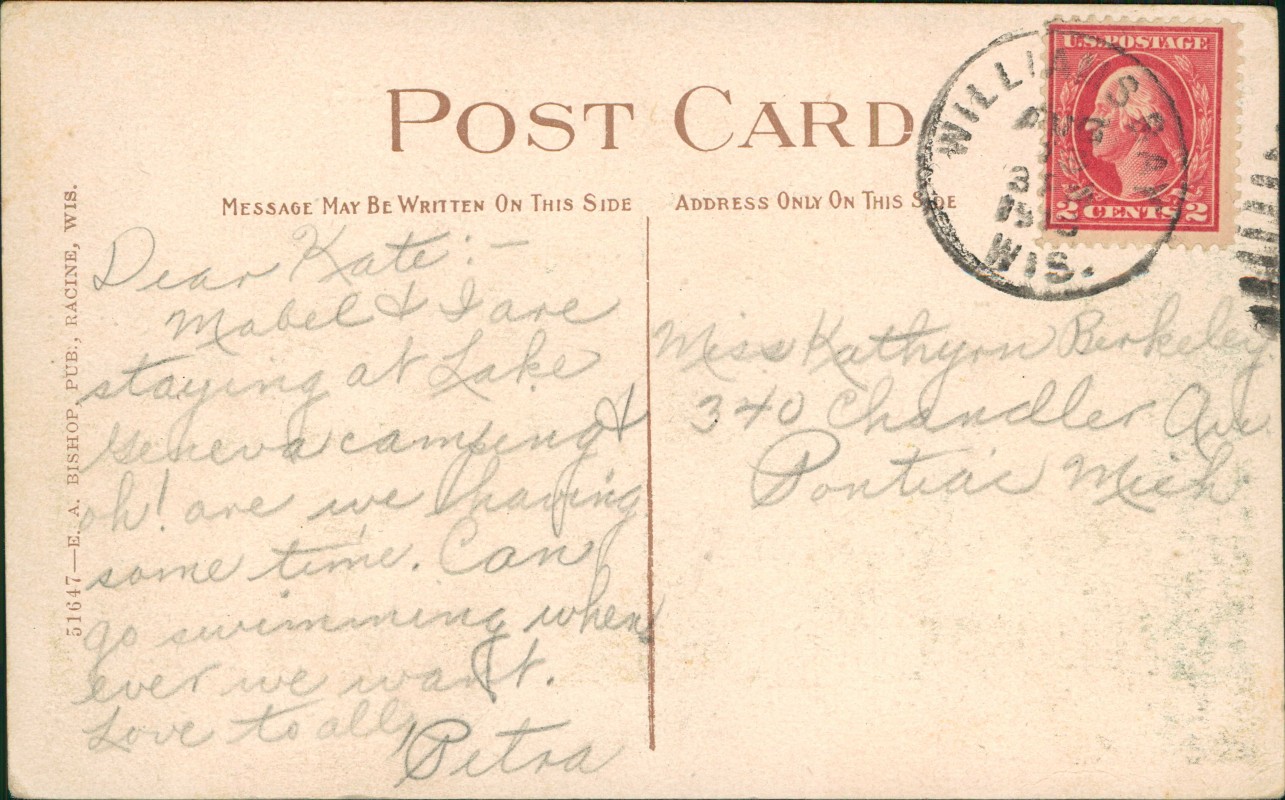 POST CARD
MESSAGE MAY BE WRITTEN ON THIS SIDE
ADDRESS ONLY ON THIS SIDE
U.S. POSTAGE
2 CENTS 2
WILLIAMS BAY
AUG
WIS.
51647—E. A. BISHOP, PUB., RACINE, WIS.
Dear Kate:—
Mabel & I are
staying at Lake
Geneva camping &
oh! are we having
some time. Can
go swimming when
ever we want.
Love to all,
Petra
Miss Kathyrn Berkeley
340 Chandler Ave.
Pontiac Mich.